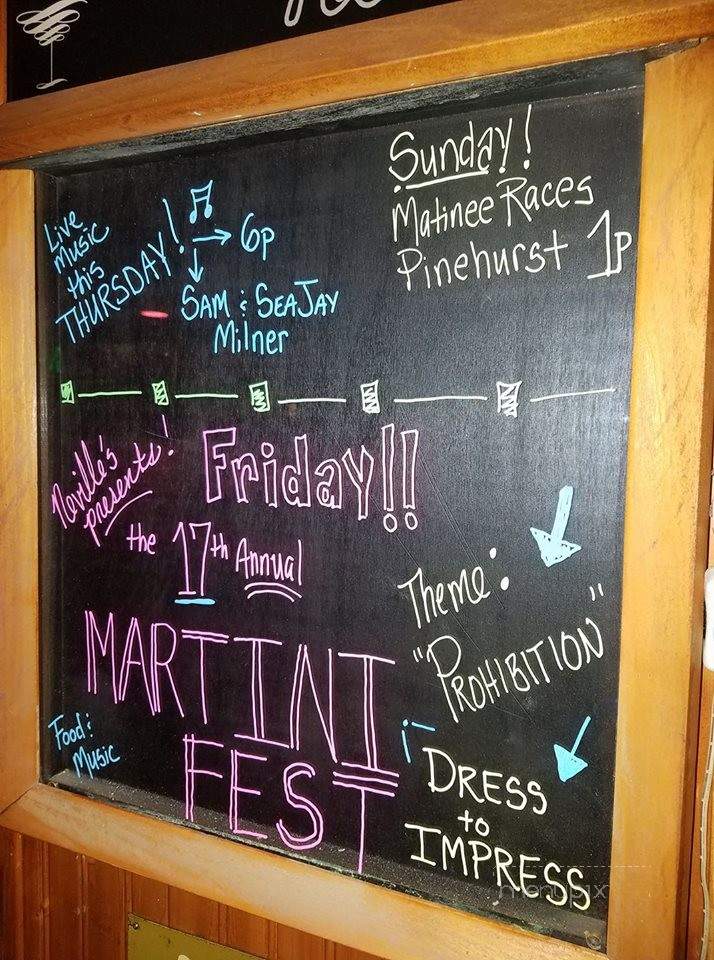 Live
music
this
THURSDAY!
→ 6p
SAM & SEAJAY
Milner
Sunday!
Matinee Races
Pinehurst 1p
Neville's
presents!
Friday!!
the 17th Annual
MARTINI
FEST
Food &
Music
Theme:
"PROHIBITION"
DRESS
to
IMPRESS
menupix